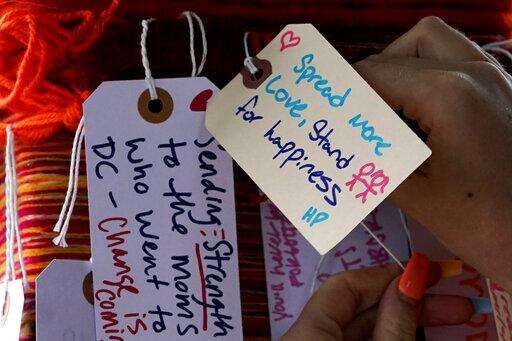 Spread more
love, Stand
for happiness
HP
Sending: Strength
to the moms
who went to
DC - Change is
coming
you'll never be